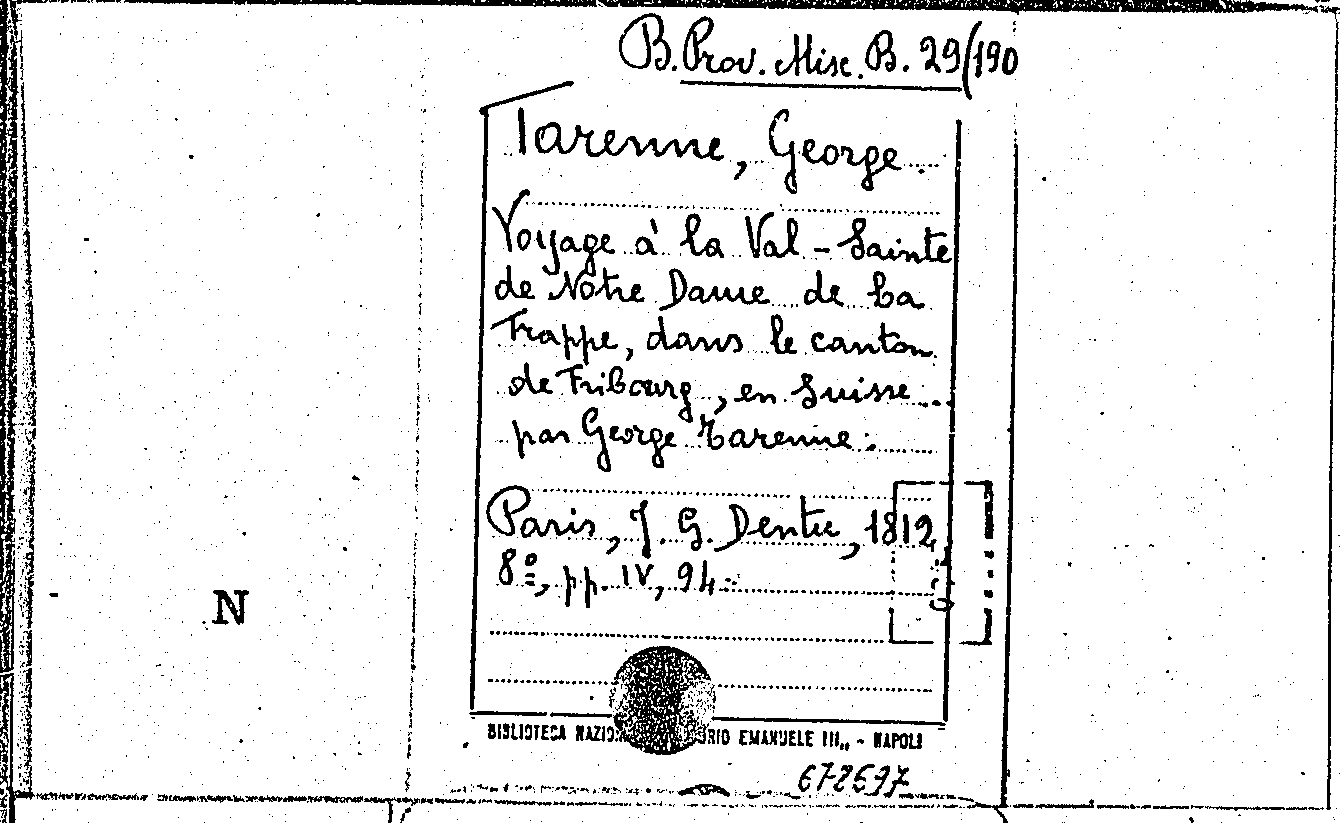 B. Prov. Misc. B. 29/190
Tarenne, George
Voyage à la Val-Sainte
de Notre Dame de La
Trappe, dans le canton
de Fribourg, en Suisse
par George Tarenne.
Paris, J. G. Dentu, 1812,
8º, pp. IV, 94.
N
BIBLIOTECA EMANUELE III,, - NAPOLI